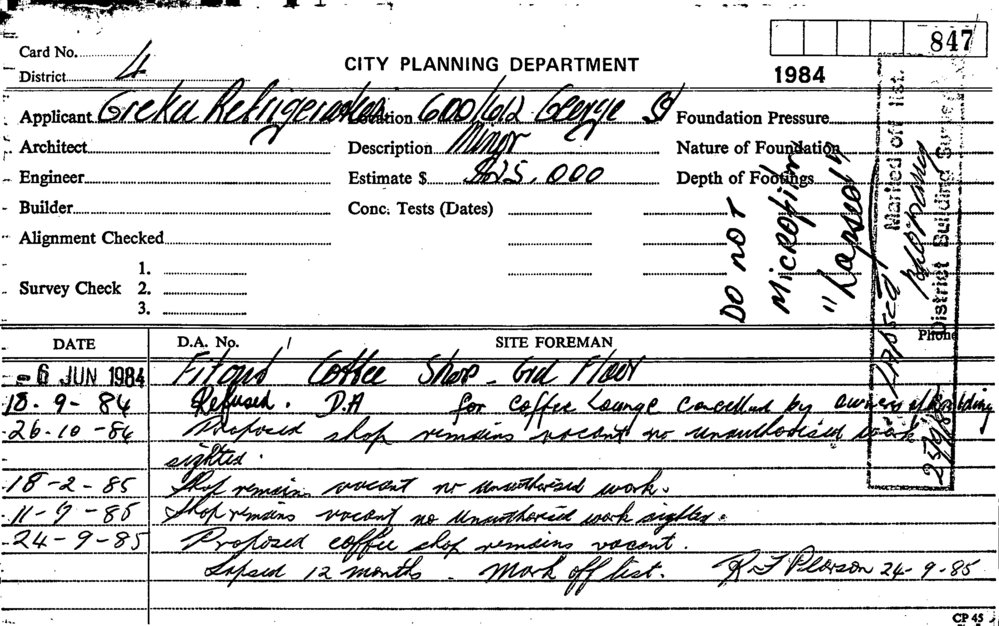 847
Card No.
District 4
CITY PLANNING DEPARTMENT
1984
Applicant Greka Refrigeration Location 600/612 George St Foundation Pressure
Architect Description Minor Nature of Foundation
Engineer Estimate $ $25,000 Depth of Footings
Builder Conc. Tests (Dates)
Alignment Checked
1.
Survey Check 2.
3.
DO NOT
MICROFILM
"Lapsed"
LAPSED Marked off list.
District Building Surveyor
25/9/85
DATE D.A. No. SITE FOREMAN Phone
-6 JUN 1984 Fitout Coffee Shop - Grd Floor
18-9-84 Refused. D.A for Coffee Lounge cancelled by owners of building
26-10-84 Proposed shop remains vacant no unauthorised work
sighted.
18-2-85 Shop remains vacant no unauthorised work.
11-9-85 Shop remains vacant no unauthorised work sighted.
24-9-85 Proposed coffee shop remains vacant.
Lapsed 12 months - Mark off list. 24-9-85
CP 45